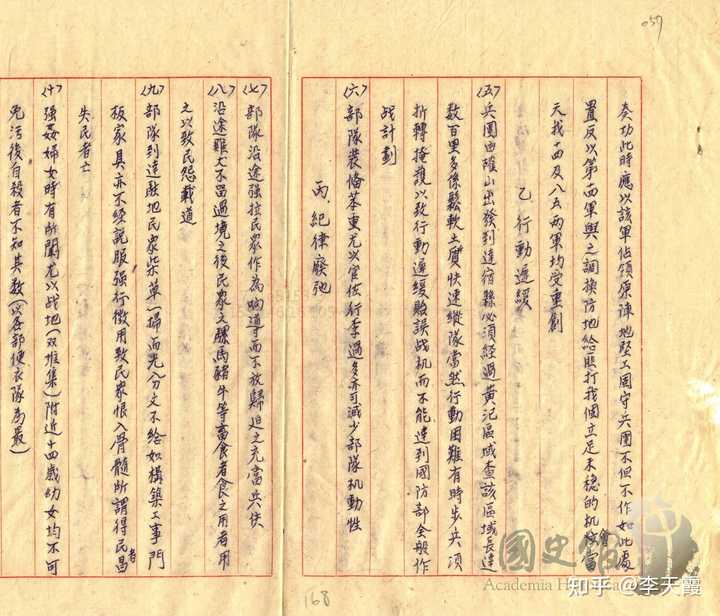 057
奏功此時應以該軍佔領原陣地堅工固守兵團不但不作如此處
置反以第十四軍與之調換防地給匪打我個立足未穩的机會當
天我十四及八五兩軍均受重創
乙、行動遲緩
(五)兵團由確山出發到達宿縣必須經過黄汜區域查該區域長達
數百里多係鬆軟土質快速縱隊當然行動困難有時步兵須
折轉掩護以致行動遲緩貽誤战机而不能達到國防部全般作
战計劃
(六)部隊裝備苯重尤以官佐行李過多亦可減少部隊机動性
丙、紀律廢弛
(七)部隊沿途强拉民衆作為响道可而不放歸迫之充當兵伕
(八)沿途雞犬不留過境之後民衆之騾馬豬牛等畜食者食之用者用
之以致民怨載道
(九)部隊到達駐地民衆柴草一掃而光分文不給如構築工事門
板家具亦不經説服强行徵用致民衆恨入骨髓所謂得民者昌
失民者亡
(十)强姦婦女時有所聞尤以战地(双堆集)附近十四歲幼女均不可
免污後自殺者不知其数(以各部便衣隊為最)
168
國史館
Academia H
知乎 @李天霞